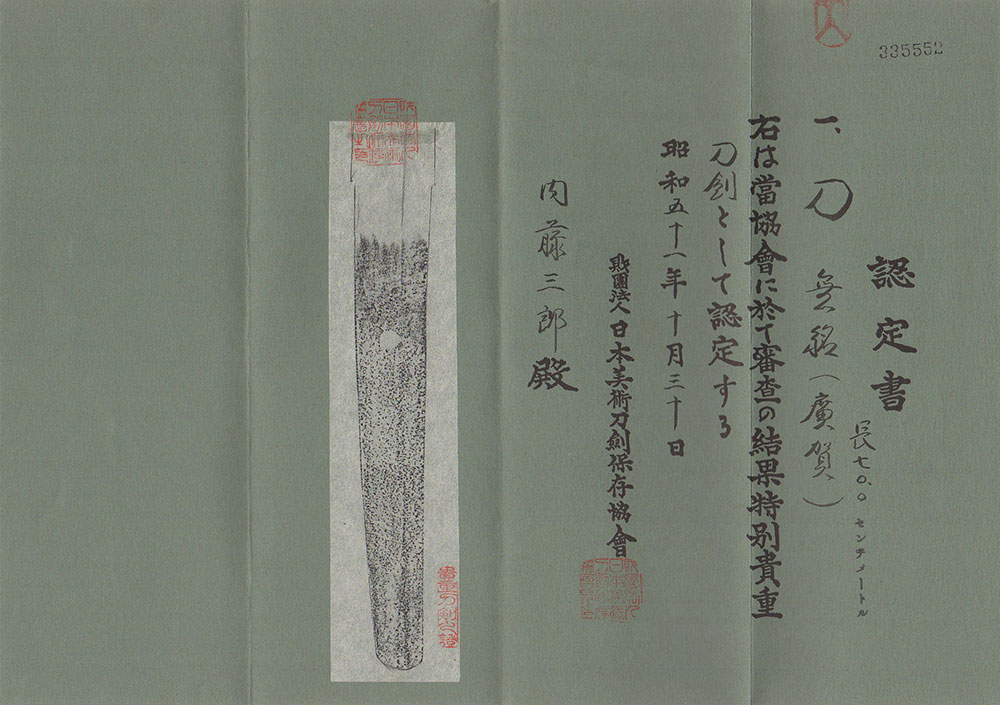 335552
認定書
一、刀 無銘（廣賀）
長七〇.〇センチメートル
右は當協會に於て審査の結果特別貴重
刀剣として認定する
昭和五十一年十月三十日
財團法人日本美術刀劍保存協會
内藤三郎殿